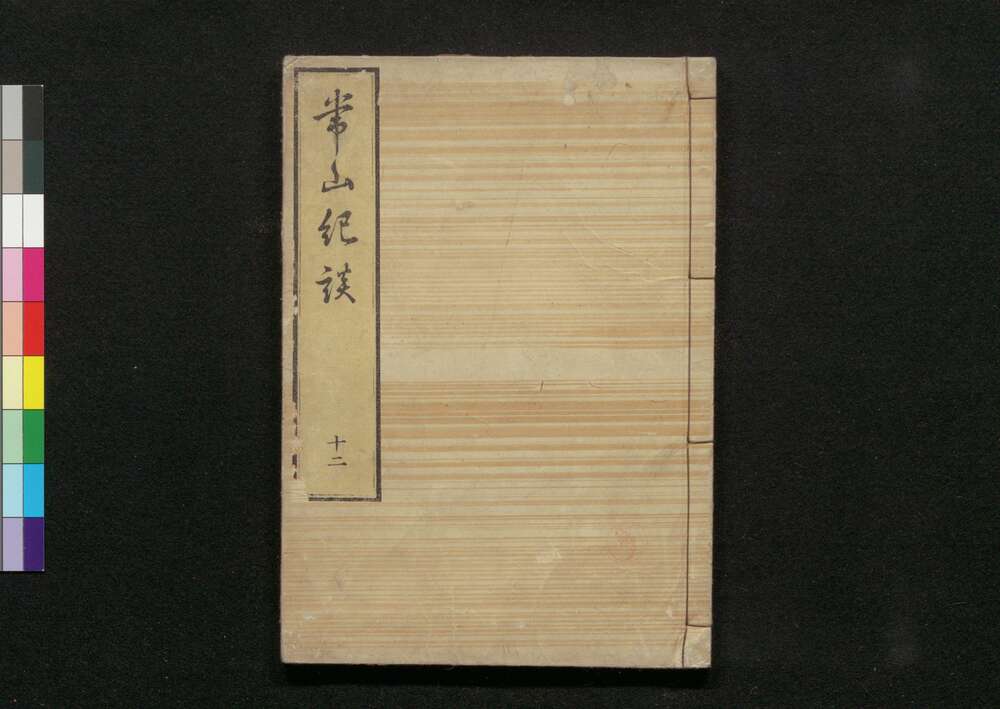 常山紀談
十二